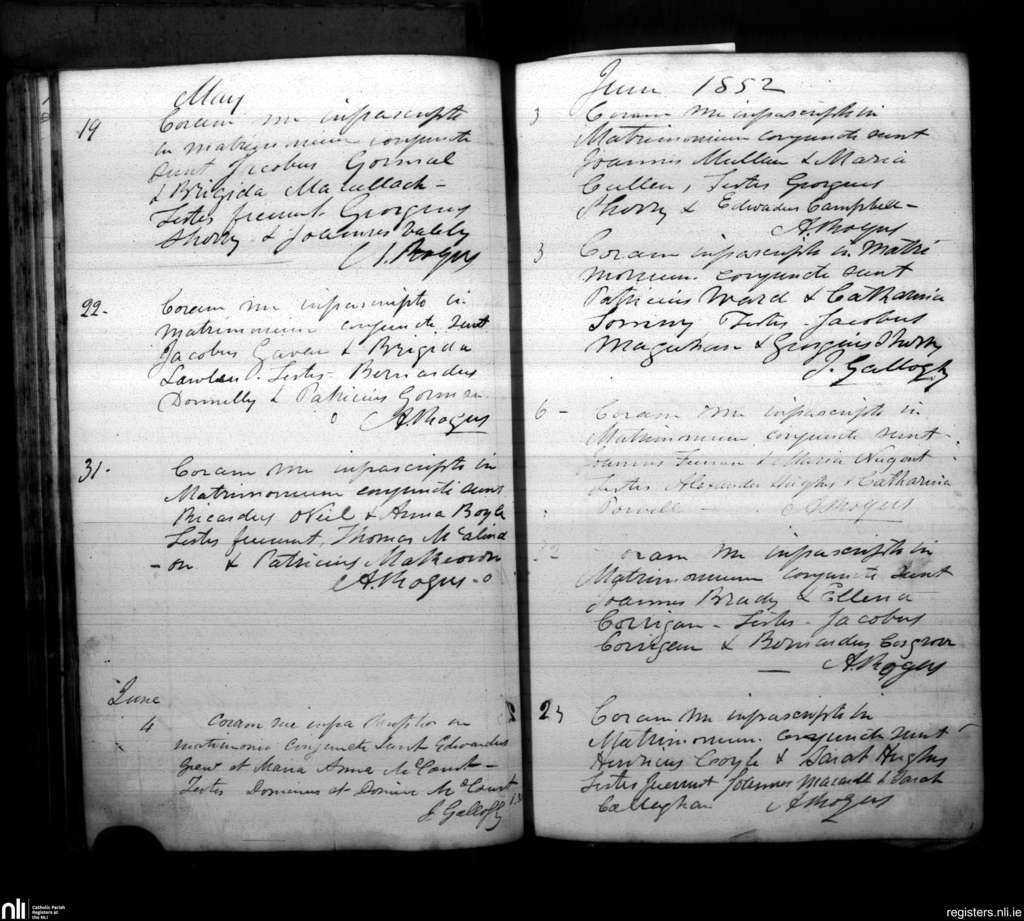 May
19 Coram me infrascripto
in matrimonium conjuncti
sunt Jacobus Gormal
& Brigida Macullach -
Testes fuerunt Georgius
Sherry & Joannes
A. Rogers
22- Coram me infrascripto in
matrimonium conjuncti sunt
Jacobus Gaven & Brigida
Testes - Bernardus
Donnelly & Patricius Gorman
A Rogers
31- Coram me infrascripto in
Matrimonium conjuncti sunt
Ricardus ONeil & Anna Boyle
Testes fuerunt, Thomas McAlind
- on & Patricius MaKeown
A. Rogers - o
June
4 Coram me infra scripto in
matrimonio conjuncti sunt Edwardus
et Maria Anna McCourt -
Testes et McCourt
J Gallogly
June 1852
3 Coram me infrascripto in
Matrimonium conjuncti sunt
Joannes Mullan & Maria
Cullen, Testes Georgius
Sherry & Edwardus Campbell -
A. Rogers
3 Coram infrascripto in Matri
monium conjuncti sunt
Patricius Ward & Catharina
Testes - Jacobus
& Georgius Sherry
J. Gallogly
6 - Coram me infrascripto in
Matrimonium conjuncti sunt -
Joannes & Maria Nugent
Testes Alexander Hughes & Catharina
A Rogers
oram me infrascripto in
Matrimonium conjuncti sunt
Joannes Brady & Ellena
Corrigan - Testes - Jacobus
Corrigan & Bernardus Cosgrove
A. Rogers
23 Coram me infrascripto in
Matrimonium conjuncti sunt
Henricus Coyle & Sarah Hughes
Testes fuerunt Joannes & Sarah
Callaghan A Rogers
nli Catholic Parish
Registers at
the NLI
registers.nli.ie